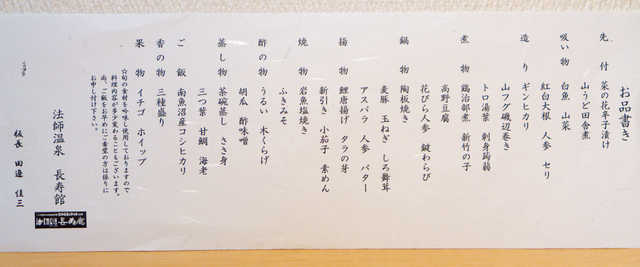 お品書き
先付 菜の花辛子漬け
山うど田舎煮
吸い物 白魚 山菜
造り ギンヒカリ
紅白大根 人参 セリ
山フグ磯辺巻き
トロ湯葉 刺身蒟蒻
煮物 鶏治部煮 新竹の子
高野豆腐
花びら人参 鍵わらび
鍋物 陶板焼き
麦豚 玉ねぎ しろ舞茸
アスパラ 人参 バター
揚物 鯉唐揚げ タラの芽
新引き 小茄子 素めん
焼物 岩魚塩焼き
ふきみそ
酢の物 うるい 木くらげ
胡瓜 酢味噌
蒸し物 茶碗蒸し ささ身
三つ葉 甘鯛 海老
ご飯 南魚沼産コシヒカリ
香の物 三種盛り
果物 イチゴ ホイップ
☆旬の食材を吟味し使用しておりますので
料理内容が多少変わることもございます。
尚、ご飯をお早めにご希望の方は係りに
お申し付け下さい。
法師温泉 長寿館
板長 田邉 佳三